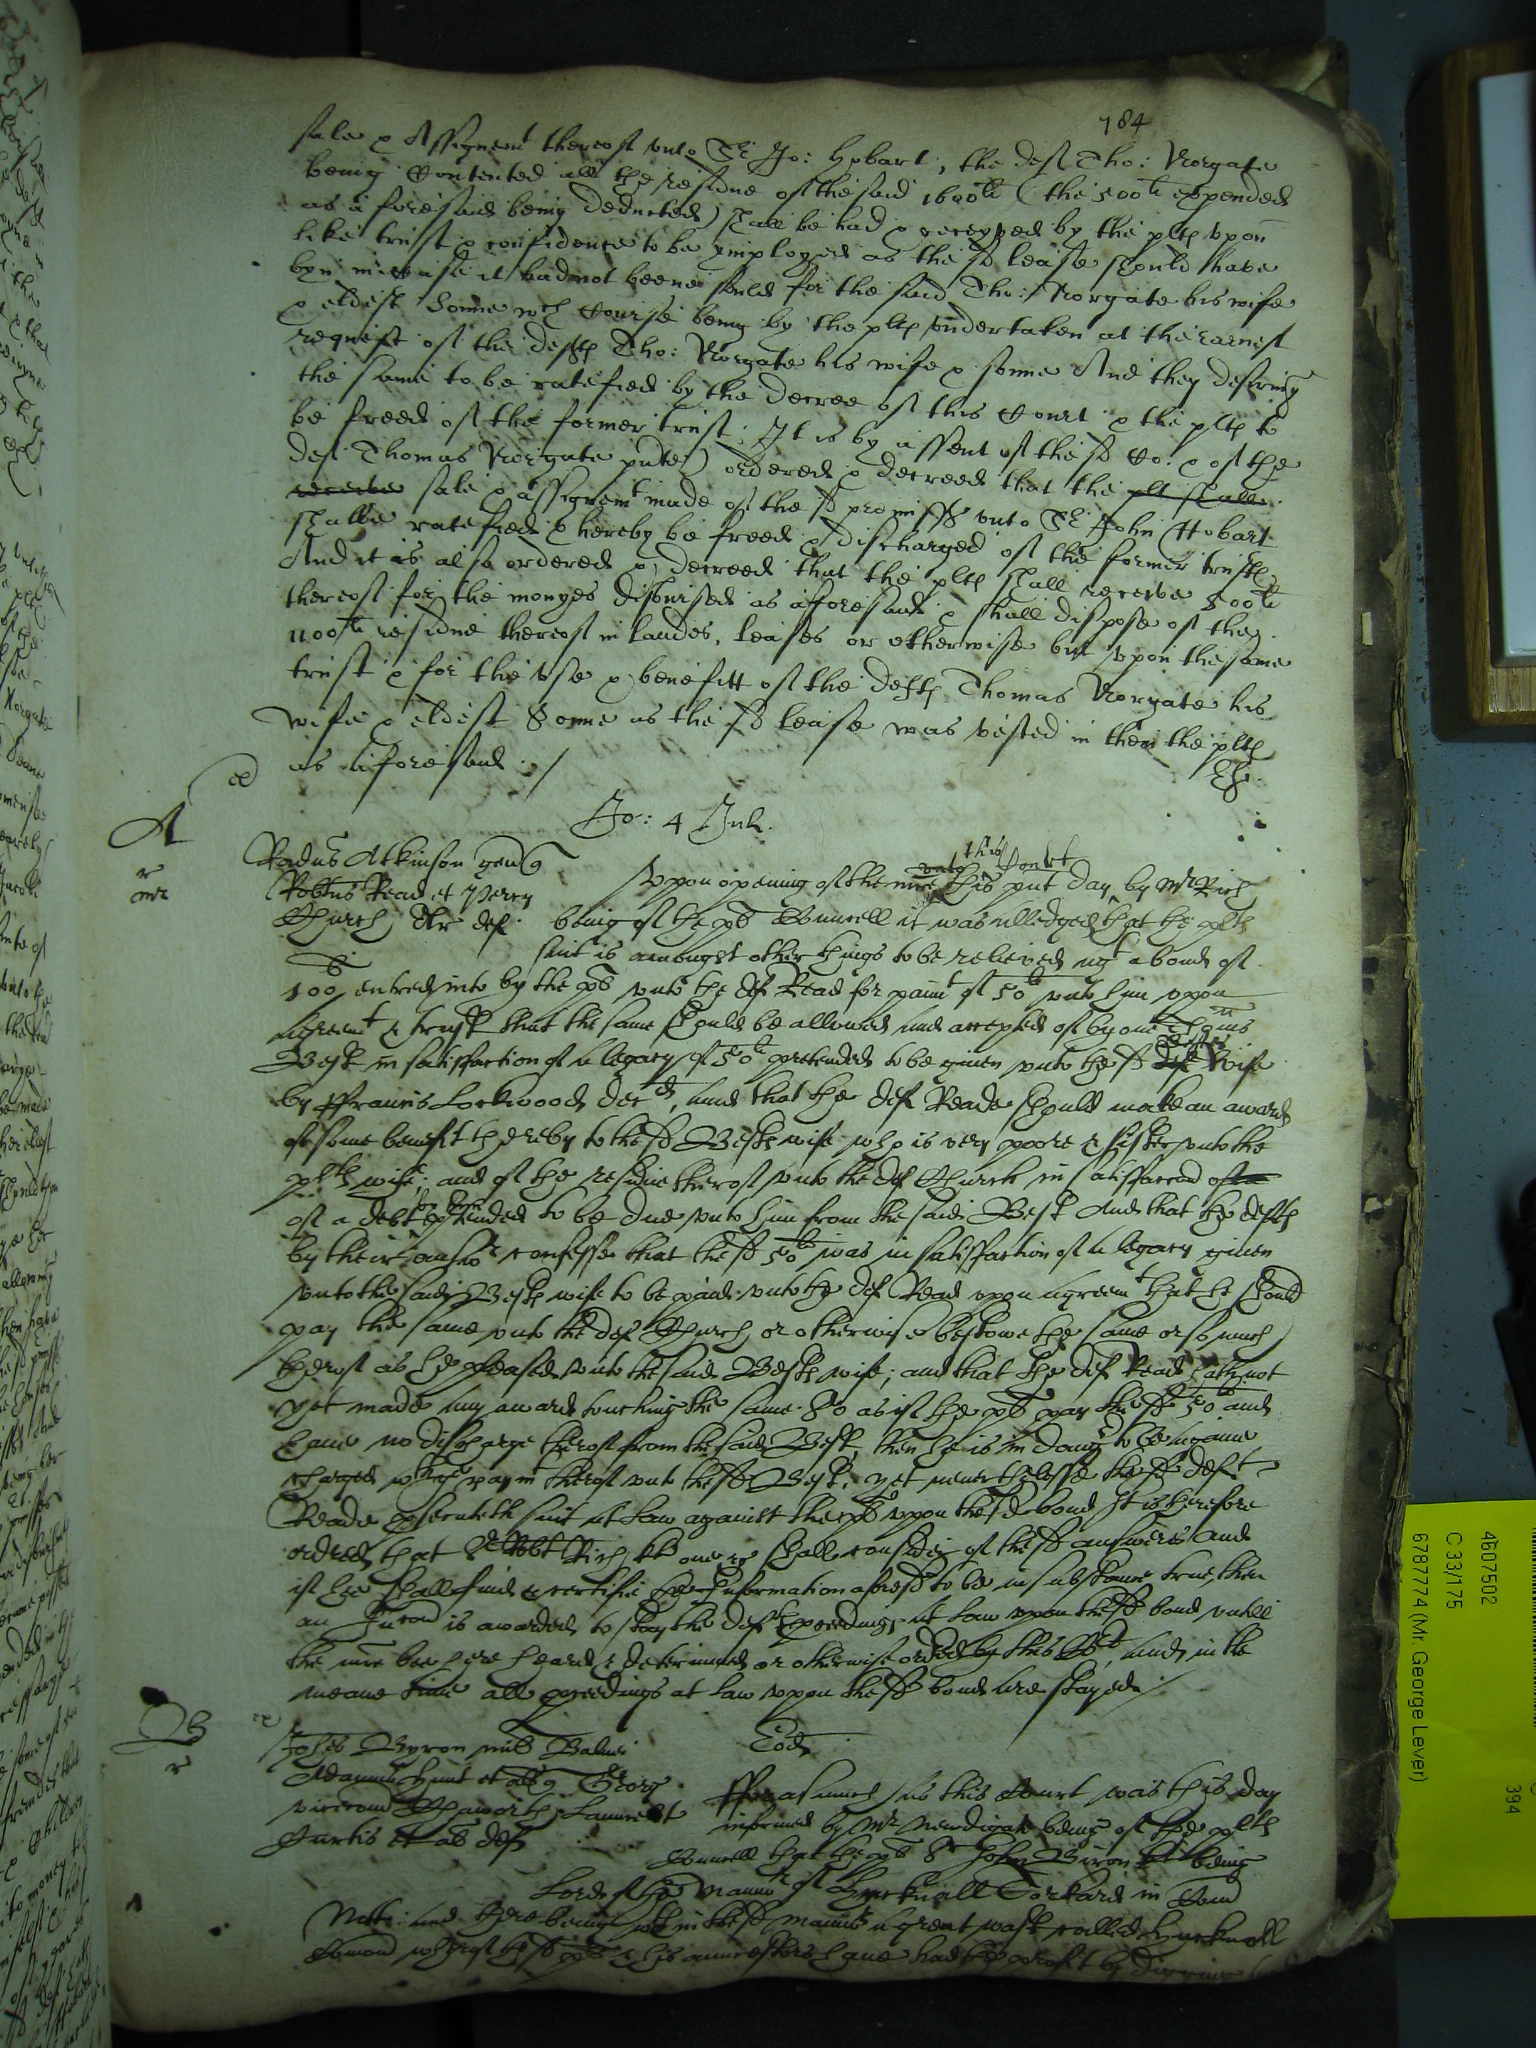 784
sale & Assignemt thereof unto Sr Jo: Hobart, the deft Tho: Norgate
being Contented all the residue of the said 1600li (the 500li expended
as aforesaid being deducted) shall be had & receyved by the plts vpon
like trust & confidence to be ymployed as the sd lease should have
byn in case it had not beene sould for the said Tho: Norgate his wife
& eldest Sonne wch Course being by the plts vndertaken at the earnest
request of the defts Tho: Norgate his wife & sonne And they desiring
the same to be ratefied by the decree of this Court & the plts to
be freed of the former trust. It is by assent of the sd Co: & of the
deft Thomas Norgate ordered & decreed that the plt shall
receive sale & assignemt made of the sd premisses vnto Sr John Hobart
shalbe ratefied & hereby be freed & discharged of the former trusts
And it is also ordered & decreed that the plts shall receive 500li
thereof for the monyes disbursed as aforesaid & shall dispose of the
1100li residue thereof in landes, leases or otherwise but vpon the same
trust & for the vse & benefitt of the defts Thomas Norgate his
wife & eldest Sonne as the sd lease was vested in them the plts
as aforesaid
A
Jo: 4 Jul.
Radus Atkinson gen
Robtus Read et Perry
Church Ar def
Vpon opening of the mre vnto this Court this pnt day by Mr Rich
being of the pls Councell it was alledged that the plts
suit is amongst other things to be relieved agt a bond of
100li entred into by the pl vnto the def Read for paimt of 50li vnto him vpon
agreemt & trust that the same should be allowed and accepted of by one
West in satisfaction of a legacy of 50li pretended to be given vnto the sd Wests def wife
by ffrancis Lockwood decd, and that the def Reade should make an award
of some benefit thereby to the sd Wests wife who is very poore & sister vnto the
plts wife; and of the residue therof vnto the def Church in satisfaccon of
of a debt pretended to be due vnto him from the said West And that the defts
by their answr confesse that the sd 50li was in satisfaction of a legacy given
vnto the said Wests wife to be paid vnto the def Read vpon agreemt that he should
pay the same vnto the def Church or otherwise bestowe the same or so much
therof as he pleased vnto the said Wests wife; and that the def Read hath not
yet made any award touching the same. So as if the pl pay the sd 50li and
have no discharge therof from the said West, then he is in daunger to be againe
charged wth paymt therof vnto the sd West, yet neverthelesse the sd deft
Reade prosecuteth suit at law against the pl vpon the sd bond It is therefore
ordred that Sr Robt Rich kt one &c shall consider of the sd answers And
if hee shall find & certifie the information aforesd to be in substance true, then
an Iniunccon is awarded to stay the defts proceedings at law vpon the sd bond vntill
the mre bee here heard & determined or otherwise ordred by this Court, and in the
meane time all proceedings at law vpon the sd bond are stayed
B
Johes Byron miles Balnei
Adamus Hunt et als
Chaworth Laurence
Curtis et als def
Eod
fforasmuch as this Court was this day
informed by Mr Newdigate being of the plts
Councell that the pl Sr John Biron being
Lord of the Mannor of Hucknall Torkard in Com
Nott: and there being within the sd mannor a great wast called Hucknall
Comon wherof the sd pl & his auncestors have had the profit by digging
4607502
C 33/175
6787774 (Mr. George Lever)
394